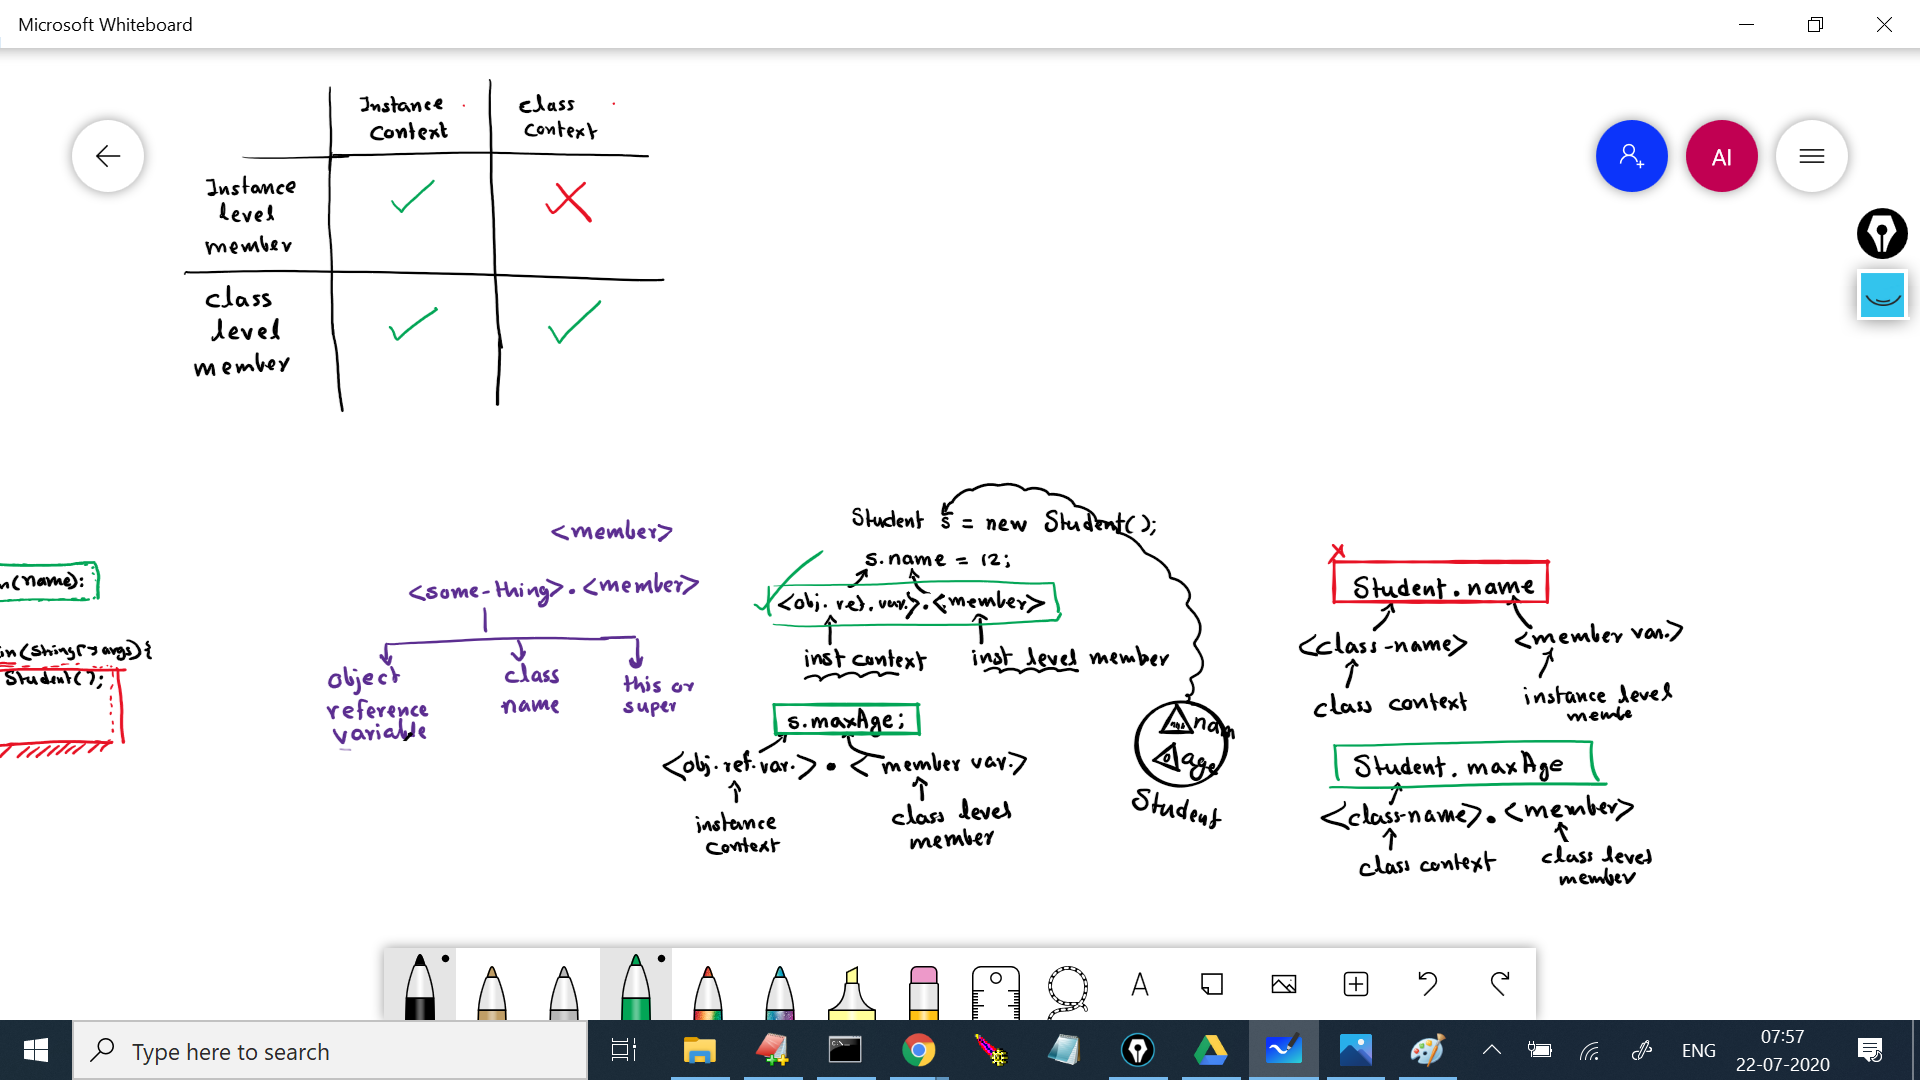 Microsoft Whiteboard
Instance Context
Class Context
Instance level member
Class level member
AI
<member>
<some-thing>.<member>
object reference variable
class name
this or super
n(name):
in(String[] args){
Student();
Student s = new Student();
s.name = 12;
<obj. ref. var.>.<member>
inst context
inst level member
s.maxAge;
<obj.ref.var.>.<member var.>
instance context
class level member
nam
age
Student
x
Student.name
<class-name>
<member var.>
class context
instance level membe
Student.maxAge
<class-name>.<member>
class context
class level member
A
Type here to search
ENG
07:57
22-07-2020